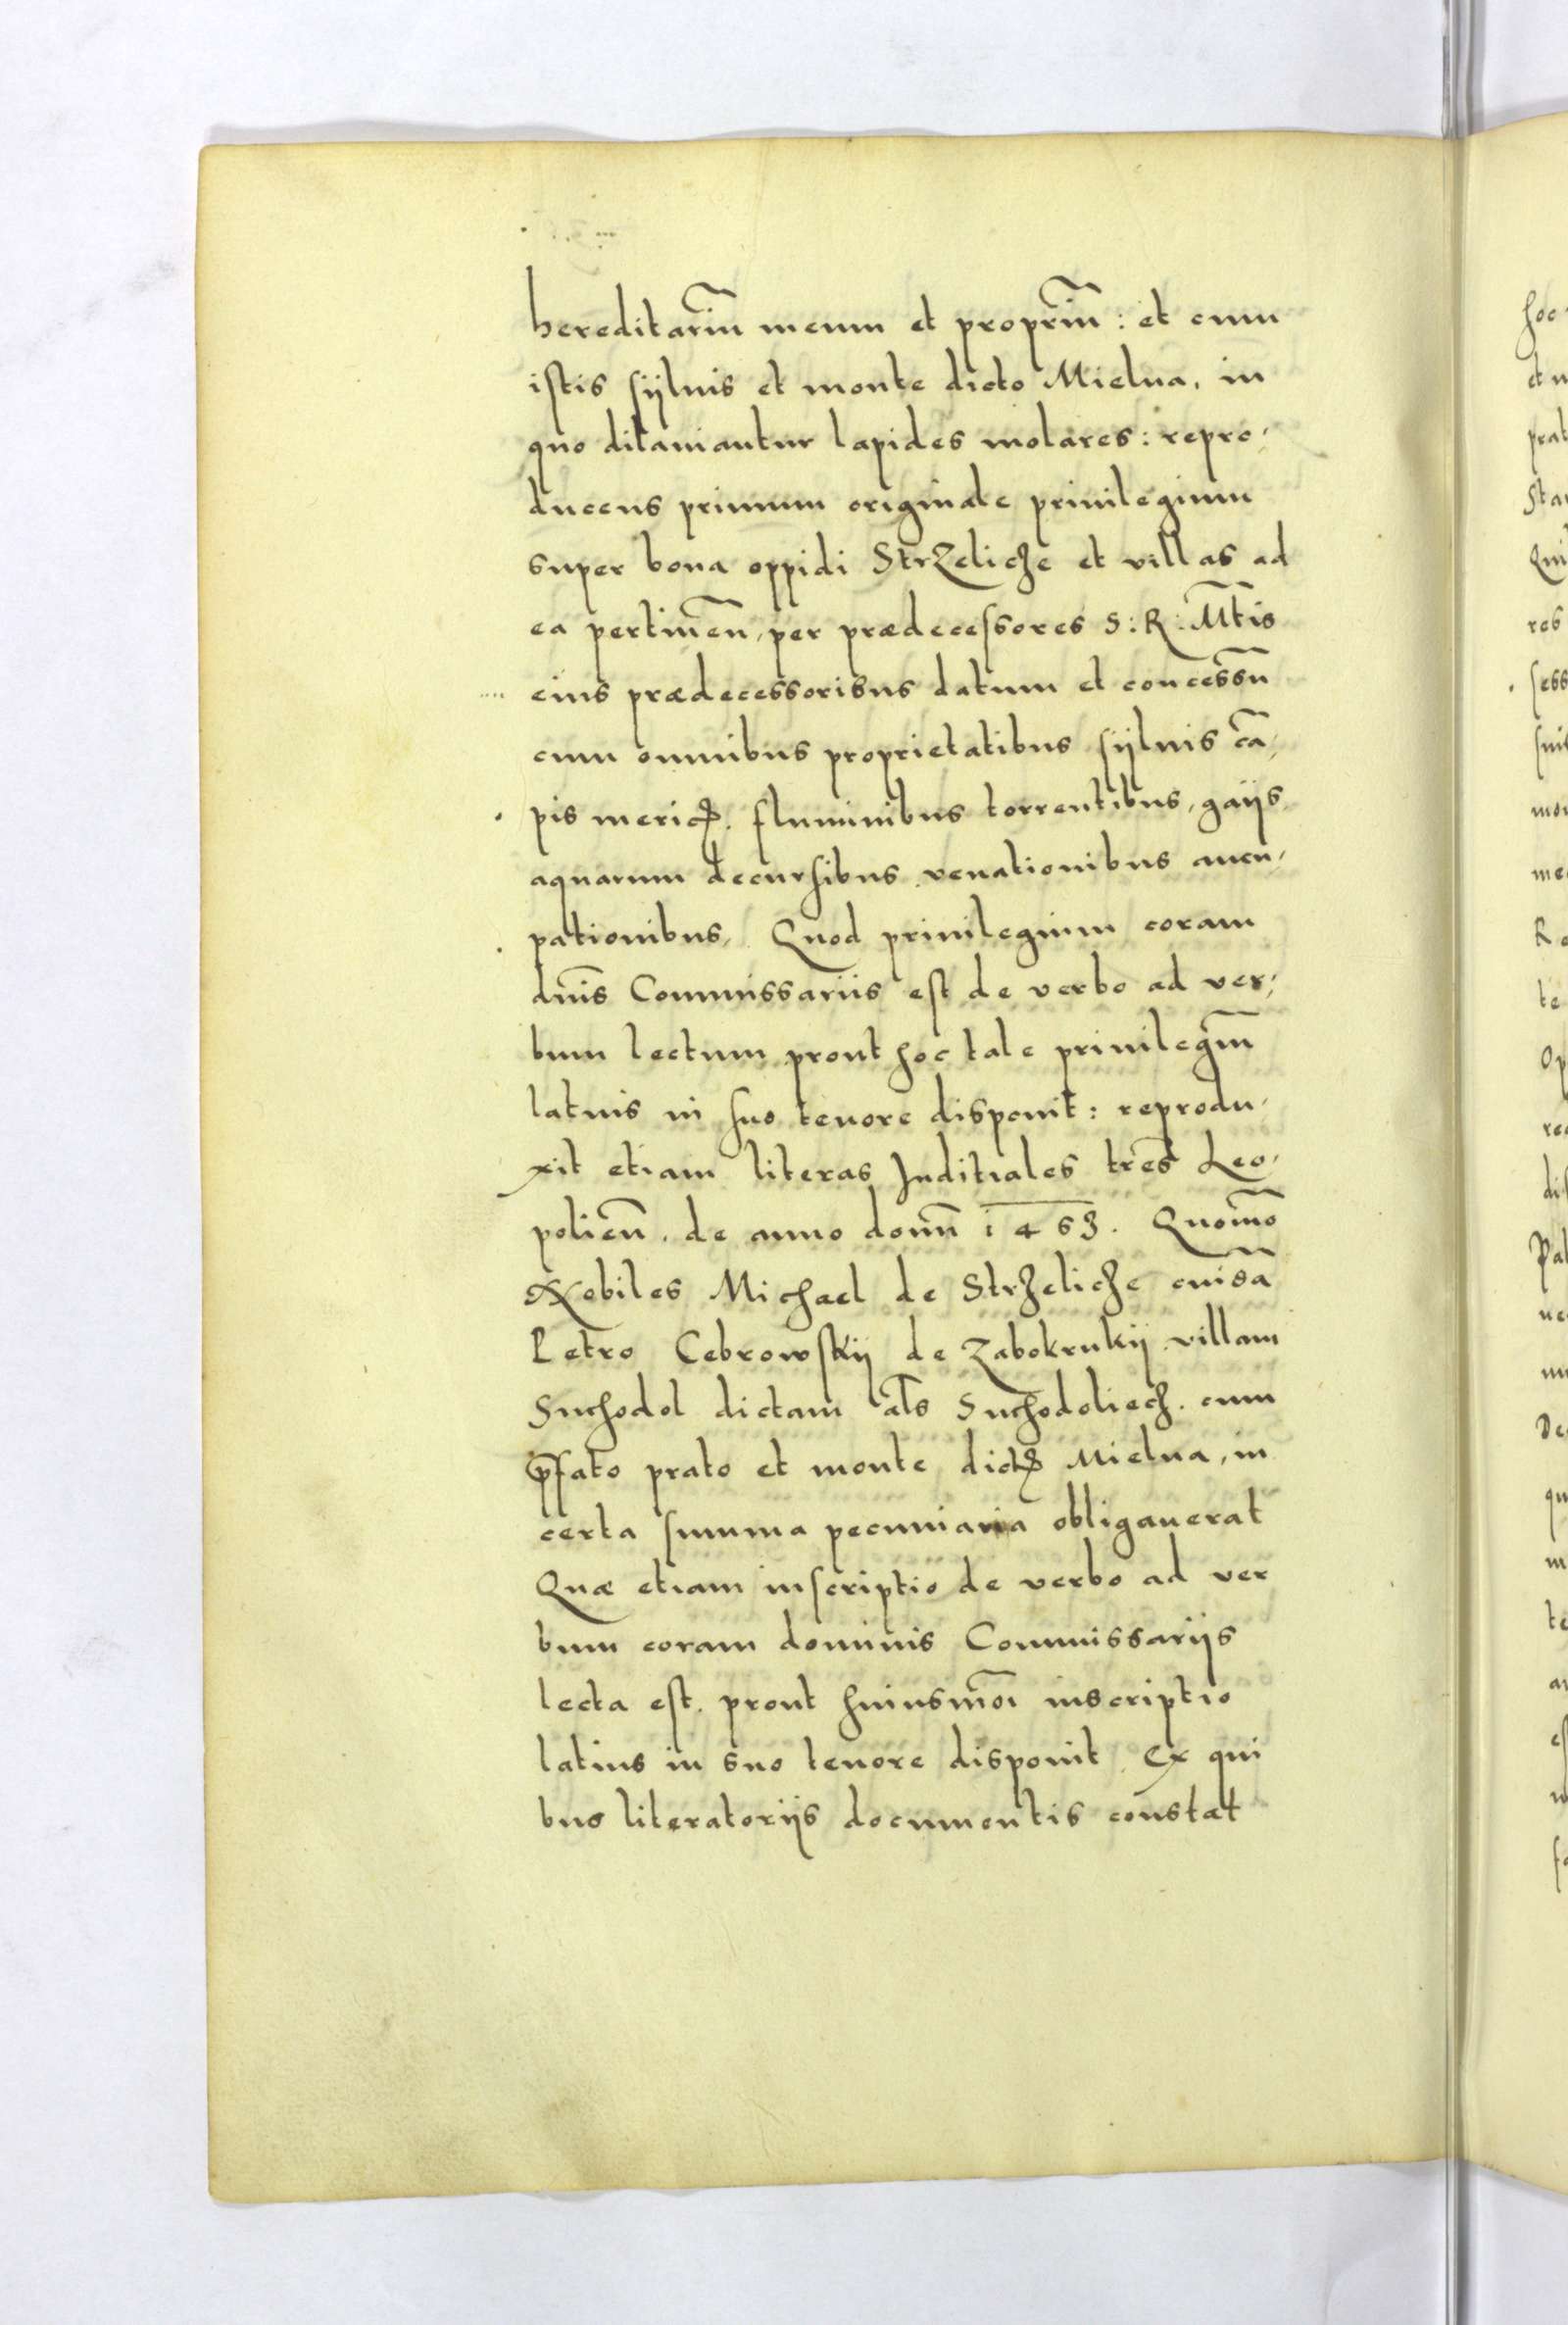 hereditariũ meum et propriũ : et cum
istis syluis et monte dicto Mielna, in
quo dilaniantur lapides molares : repro-
ducens primum originale priuilegium
super bona oppidi Strzelicze et villas ad
ea pertineñ, per prædecessores S : R : Mtis
eius prædecessoribus datum et concessũ
cum omnibus proprietatibus sijluis cã-
pis mericis. fluminibus torrentibus, gaijs
aquarum decursibus venationibus aucu-
pationibus, Quod priuilegium coram
dñis Commissariis est de verbo ad ver-
bum lectum prout hoc tale priuilegiũ
latius in suo tenore disponit : reprodu-
xit etiam literas Juditiales trẽs Leo-
polieñ. de anno domñ 1463. Quomõ
Nobiles Michael de Strzelicze cuidã
Petro Cebrowskij de Zabokrukij villam
Suchodol dictam als Suchodoliecz. cum
p̃fato prato et monte dictis Mielna, in
certa summa pecuniaria obligauerat
Quæ etiam inscriptio de verbo ad ver
bum coram dominis Commissarijs
lecta est. prout huiusmõi inscriptio
latius in suo tenore disponit Ex qui
bus literatorijs documentis constat